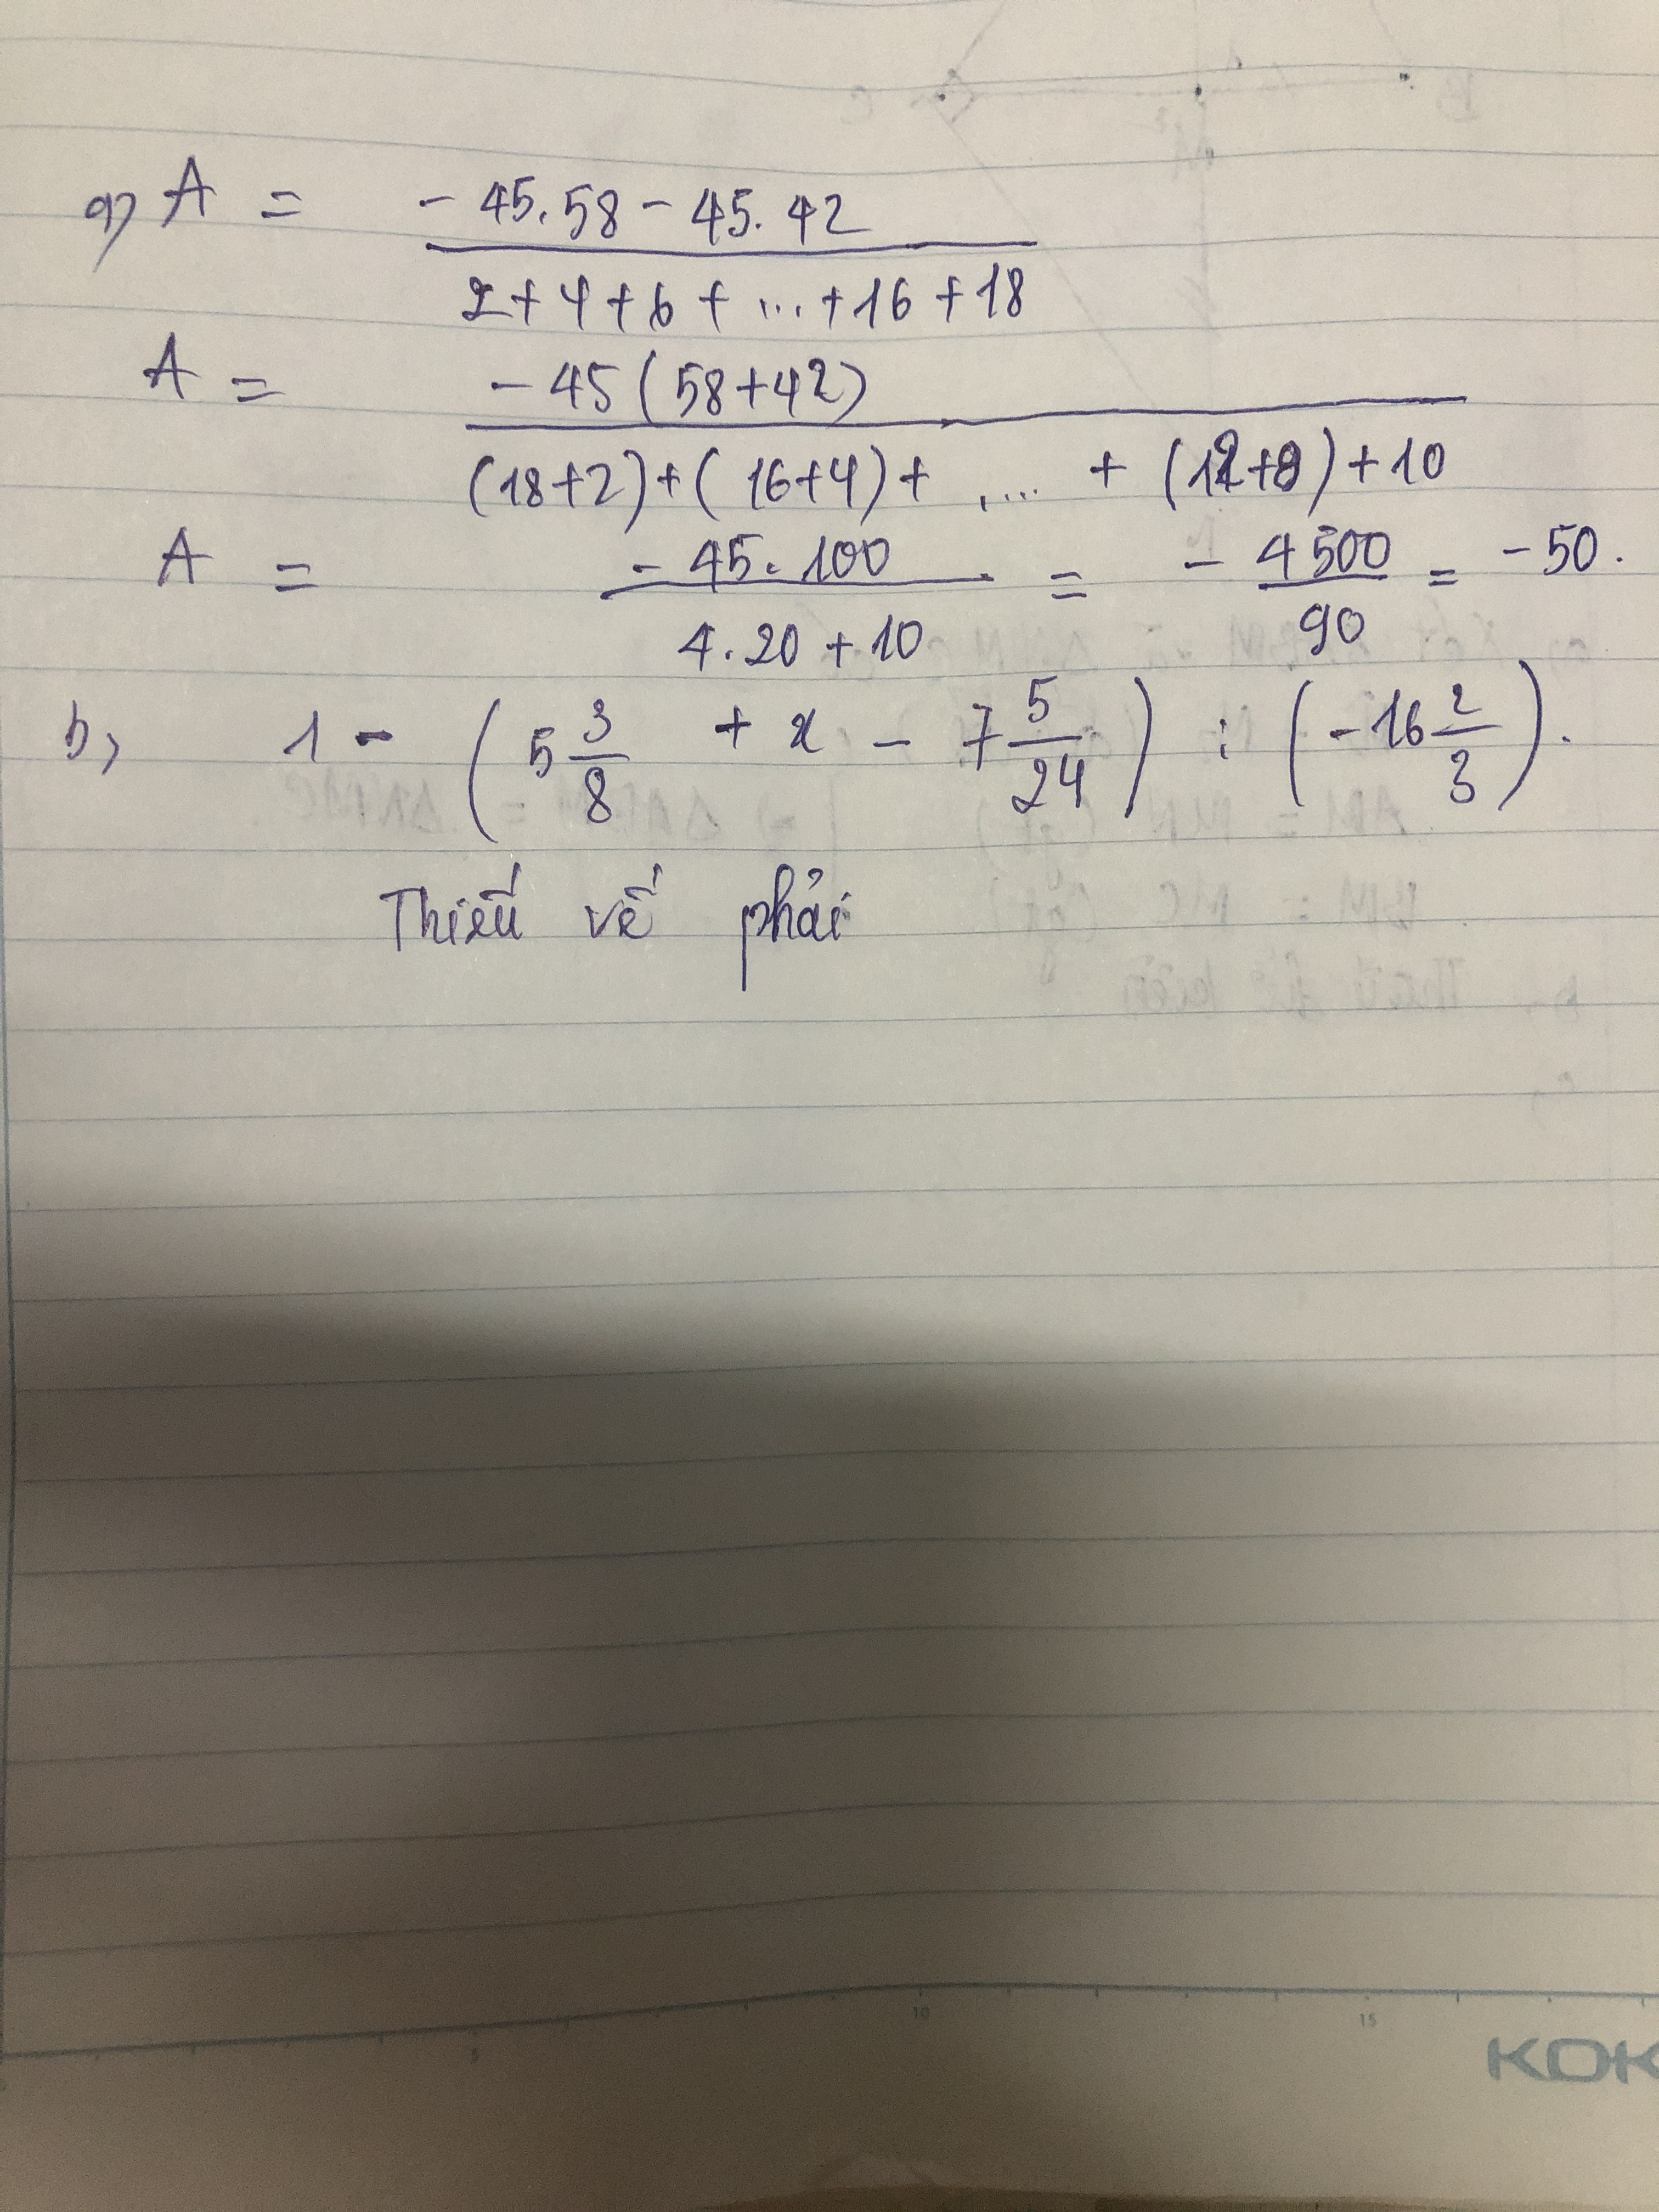 a) A = - 45.58 - 45.42
2 + 4 + 6 + ... + 16 + 18
A = - 45 (58+42)
(18+2)+( 16+4) + .... + (12+8) + 10
A = - 45. 100 = - 4500 = - 50.
4.20 + 10 90
b, 1 - ( 5 3/8 + x - 7 5/24 ) : ( -16 2/3 ).
Thiếu vế phải
10 15
5
KOK